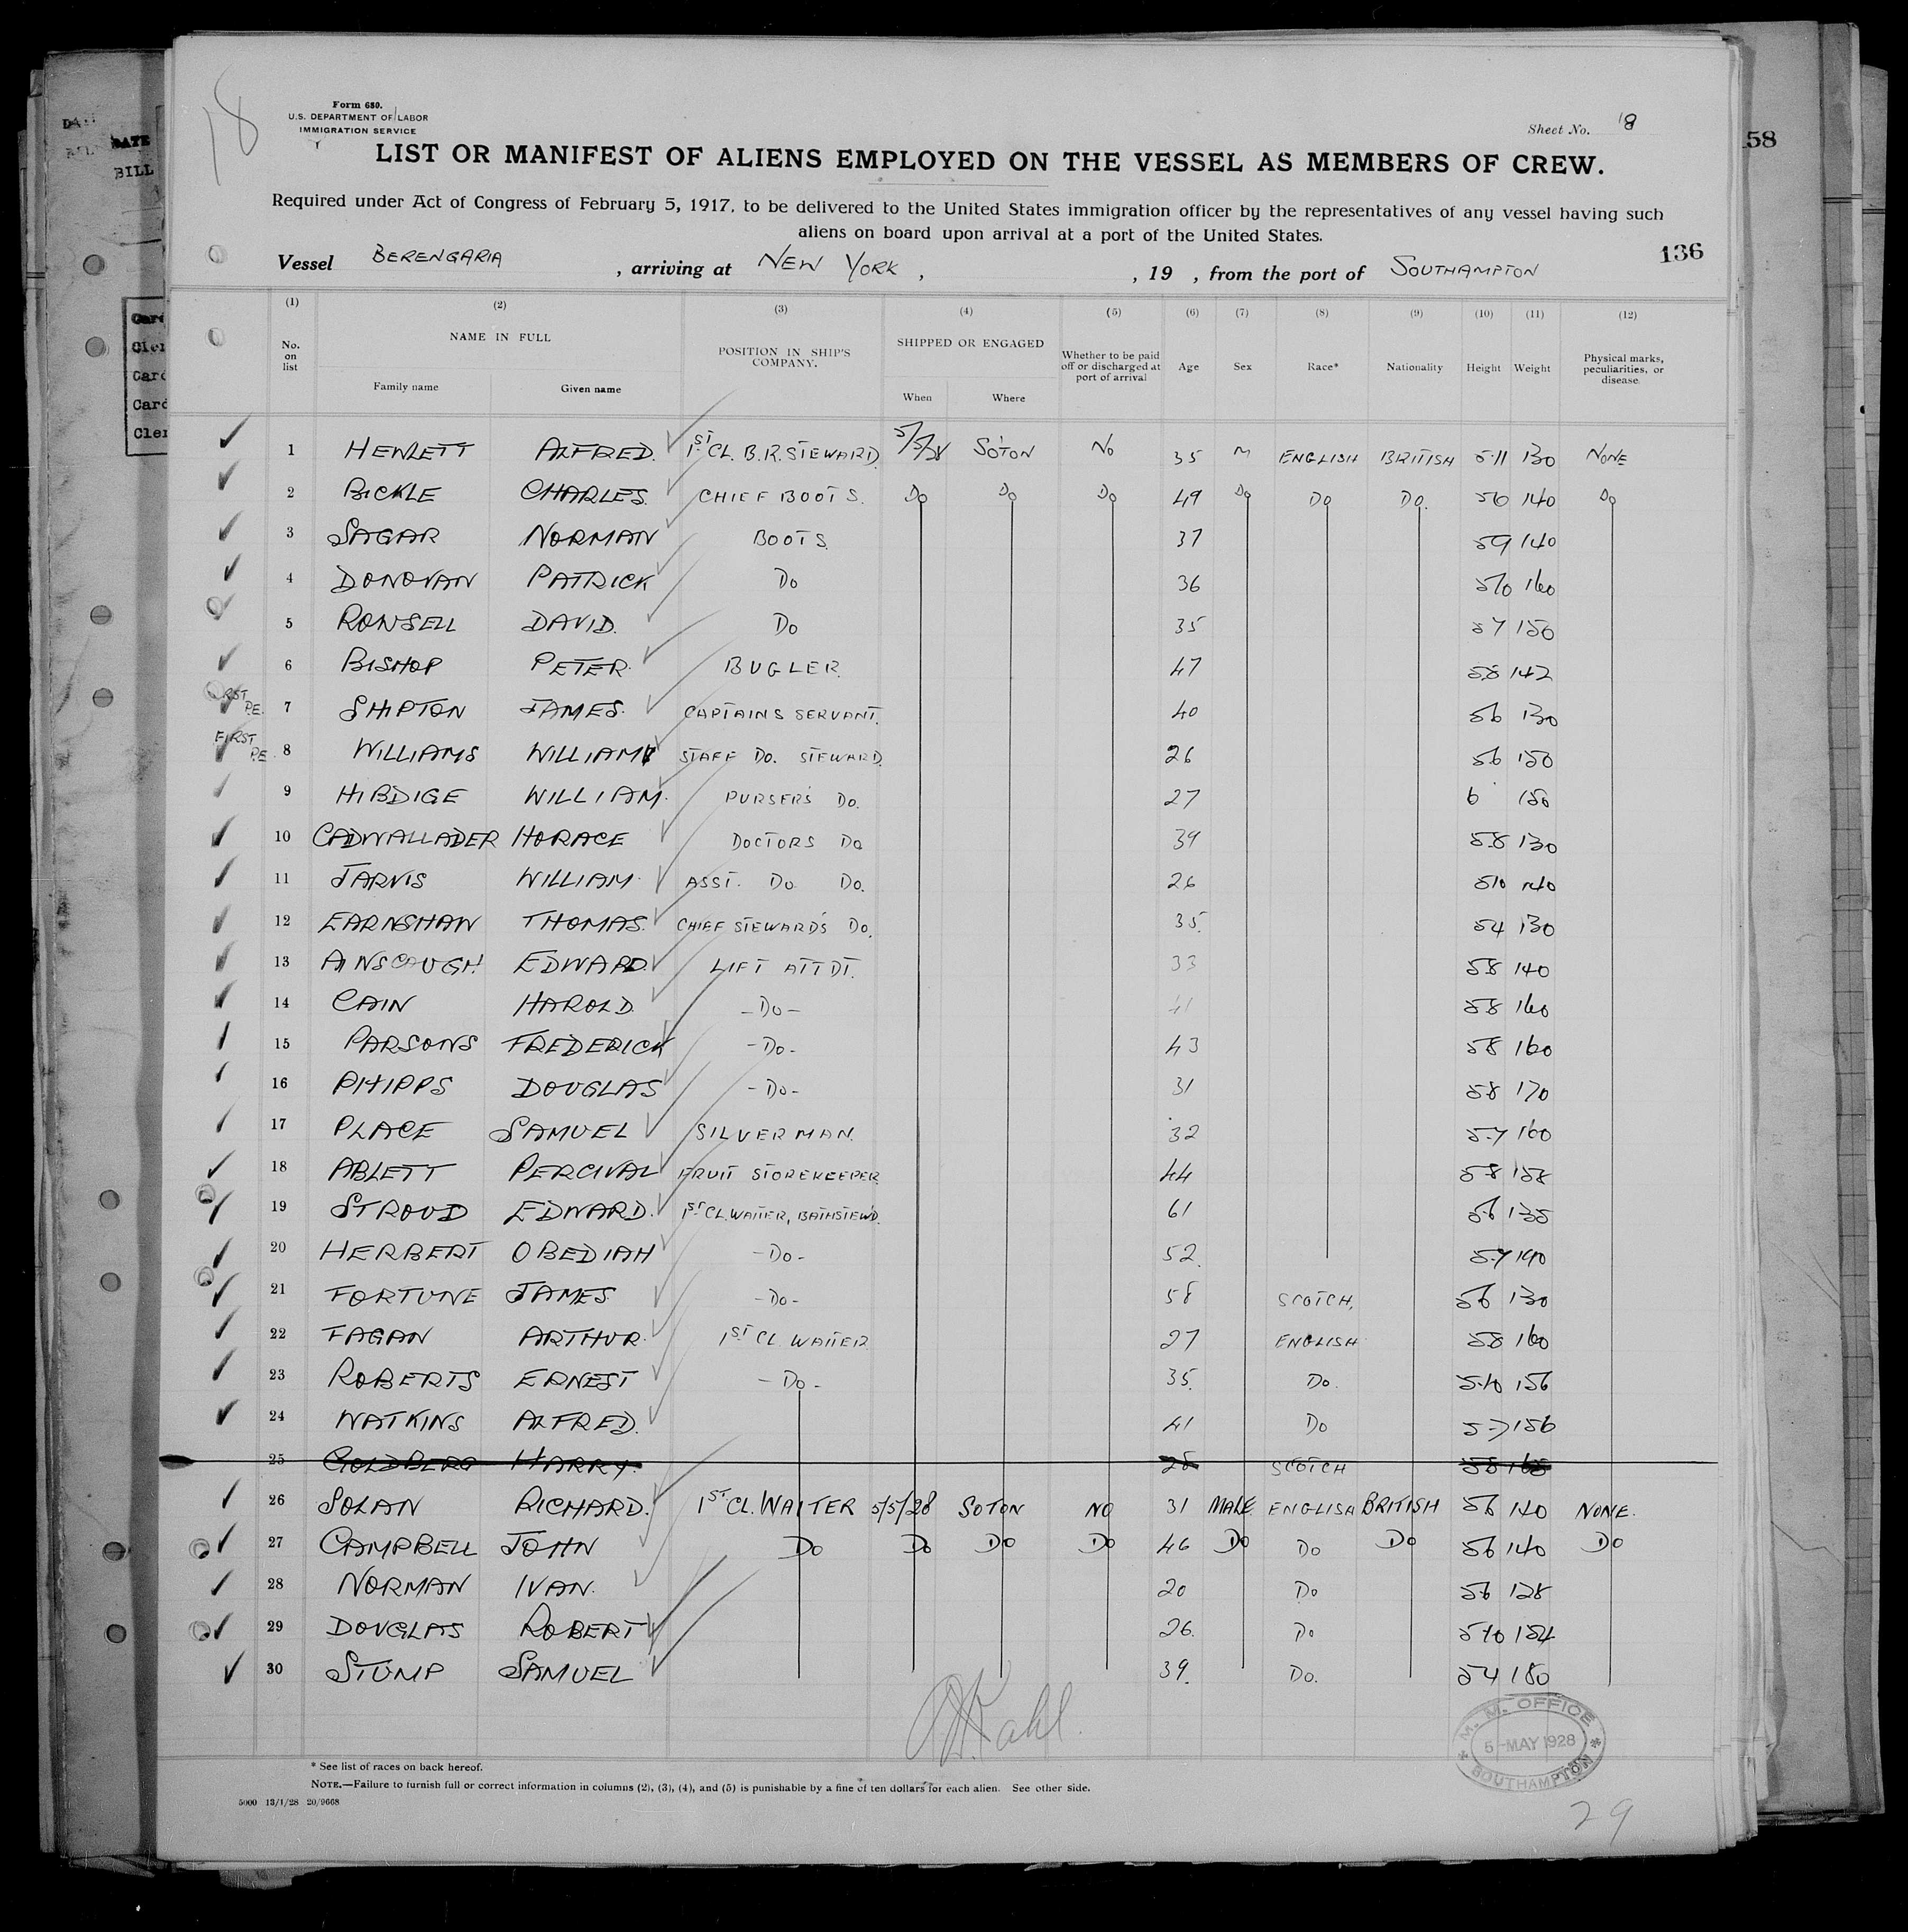 18
Form 680.
U.S. DEPARTMENT OF LABOR
IMMIGRATION SERVICE
Sheet No. 18
LIST OR MANIFEST OF ALIENS EMPLOYED ON THE VESSEL AS MEMBERS OF CREW.
Required under Act of Congress of February 5, 1917, to be delivered to the United States immigration officer by the representatives of any vessel having such
aliens on board upon arrival at a port of the United States.
136
Vessel BERENGARIA, arriving at NEW YORK, , 19 , from the port of SOUTHAMPTON
58
DATE
BILL
(1) (2) (3) (4) (5) (6) (7) (8) (9) (10) (11) (12)
No. on list NAME IN FULL Family name Given name POSITION IN SHIP'S COMPANY. SHIPPED OR ENGAGED When Where Whether to be paid off or discharged at port of arrival Age Sex Race* Nationality Height Weight Physical marks, peculiarities, or disease.
1 HEWLETT ALFRED. 1ST CL. B.R. STEWARD. 5/5/28 SOTON NO 35 M ENGLISH BRITISH 5·11 130 NONE
2 BICKLE CHARLES. CHIEF BOOTS. Do Do Do 49 Do Do Do. 56 140 Do
3 SAGAR NORMAN BOOTS. 37 59 140
4 DONOVAN PATRICK Do 36 510 160
5 RONSELL DAVID. Do 35 57 150
6 BISHOP PETER. BUGLER. 47 58 142
FIRST P.E. 7 SHIPTON JAMES. CAPTAINS SERVANT. 40 56 130
FIRST P.E. 8 WILLIAMS WILLIAM STAFF DO. STEWARD. 26 56 150
9 HIBDIGE WILLIAM. PURSER'S DO. 27 6 150
10 CADWALLADER HORACE DOCTORS DO 39 58 130
11 JARVIS WILLIAM. ASST. DO DO. 26 510 140
12 EARNSHAW THOMAS. CHIEF STEWARD'S DO. 35. 54 130
13 AINSCOUGH. EDWARD. LIFT ATTDT. 33 58 140
14 CAIN HAROLD. -Do- 41 58 160
15 PARSONS FREDERICK -Do- 43 58 160
16 PHIPPS DOUGLAS -Do- 31 58 170
17 PLACE SAMUEL SILVERMAN. 32 5·7 160
18 ABLETT PERCIVAL FRUIT STOREKEEPER. 44 58 158
19 STROUD EDWARD. 1ST CL. WAITER, BATHSTEWD. 61 56 135
20 HERBERT OBEDIAH -Do- 52. 57 190
21 FORTUNE JAMES -Do- 58 SCOTCH. 56 130
22 FAGAN ARTHUR. 1ST CL WAITER 27 ENGLISH 58 160
23 ROBERTS ERNEST -Do- 35. Do. 5·10 156
24 WATKINS ALFRED. 41 Do 57 156
25 GOLDBERG HARRY. 28 SCOTCH
26 SOLAN RICHARD. 1ST CL. WAITER 5/5/28 SOTON NO 31 MALE ENGLISH BRITISH 56 140 NONE.
27 CAMPBELL JOHN Do Do Do Do 46 Do Do Do 56 140 Do
28 NORMAN IVAN. 20 Do 56 128
29 DOUGLAS ROBERT 26. Do 510 154
30 STUMP SAMUEL 39. Do. 54 180
M. M. OFFICE
5 - MAY 1928
SOUTHAMPTON
* See list of races on back hereof.
NOTE.—Failure to furnish full or correct information in columns (2), (3), (4), and (5) is punishable by a fine of ten dollars for each alien. See other side.
5000 13/1/28 20/9668
29